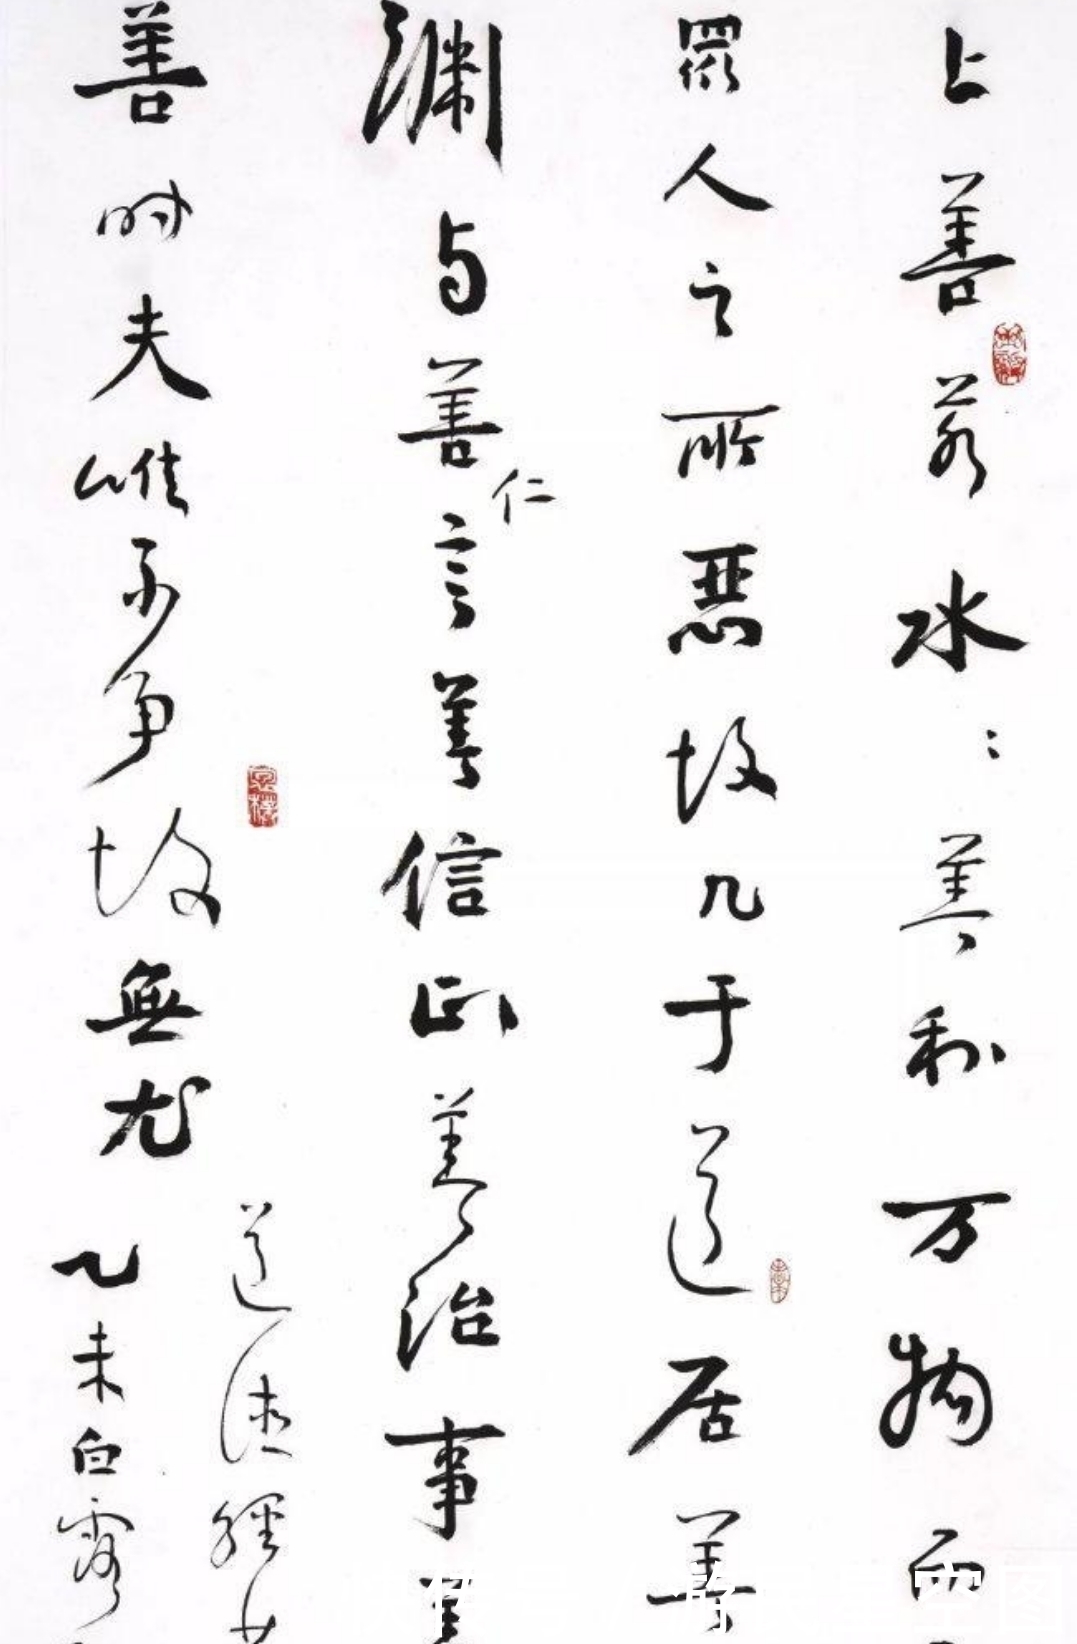 上善若水〻善利万物而
眾人之所恶故几于道居善
渊与善仁言善信正善治事善
善时夫唯不争故無尤
道德經
乙未白露